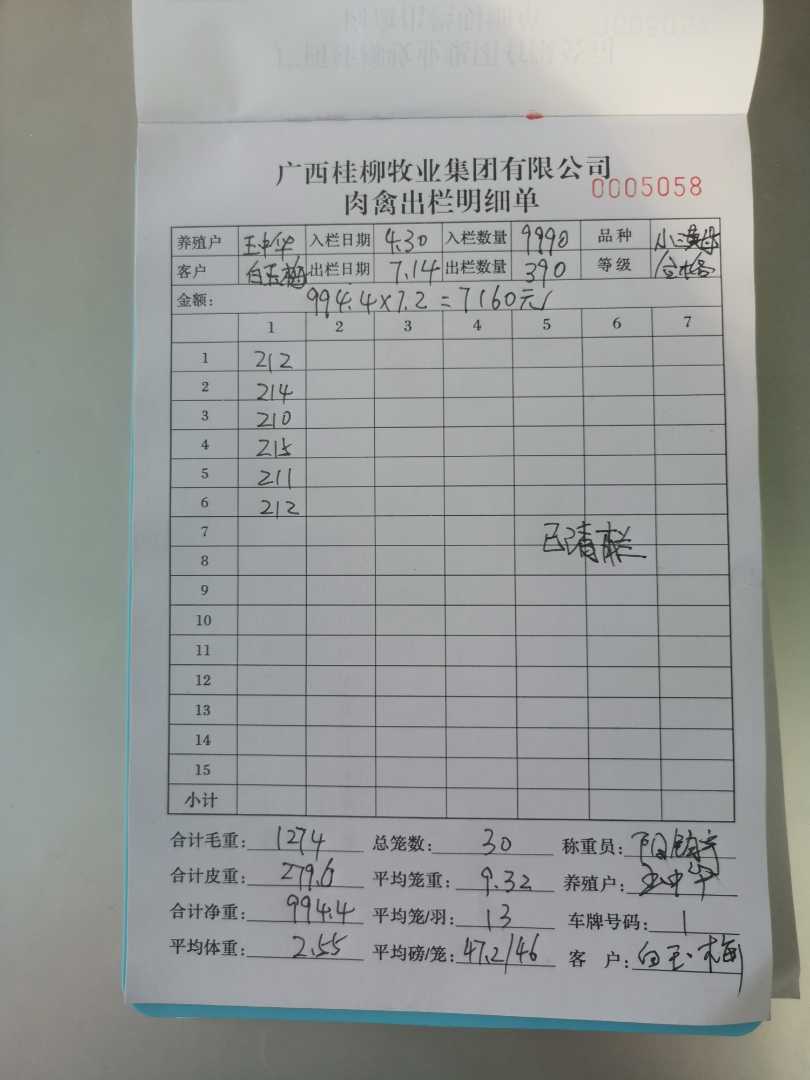 广西桂柳牧业集团有限公司
0005058
肉禽出栏明细单
养殖户 王中华 入栏日期 4.30 入栏数量 9990 品种
客户 白玉梅 出栏日期 7.14 出栏数量 390 等级 合格
金额： 994.4×7.2=7160元
1 2 3 4 5 6 7
1 212
2 214
3 210
4 215
5 211
6 212
7 已清栏
8
9
10
11
12
13
14
15
小计
合计毛重： 1274 总笼数： 30 称重员：
合计皮重： 279.6 平均笼重： 9.32 养殖户： 王中华
合计净重： 994.4 平均笼/羽： 13 车牌号码： 1
平均体重： 2.55 平均磅/笼： 47.2/46 客户： 白玉梅